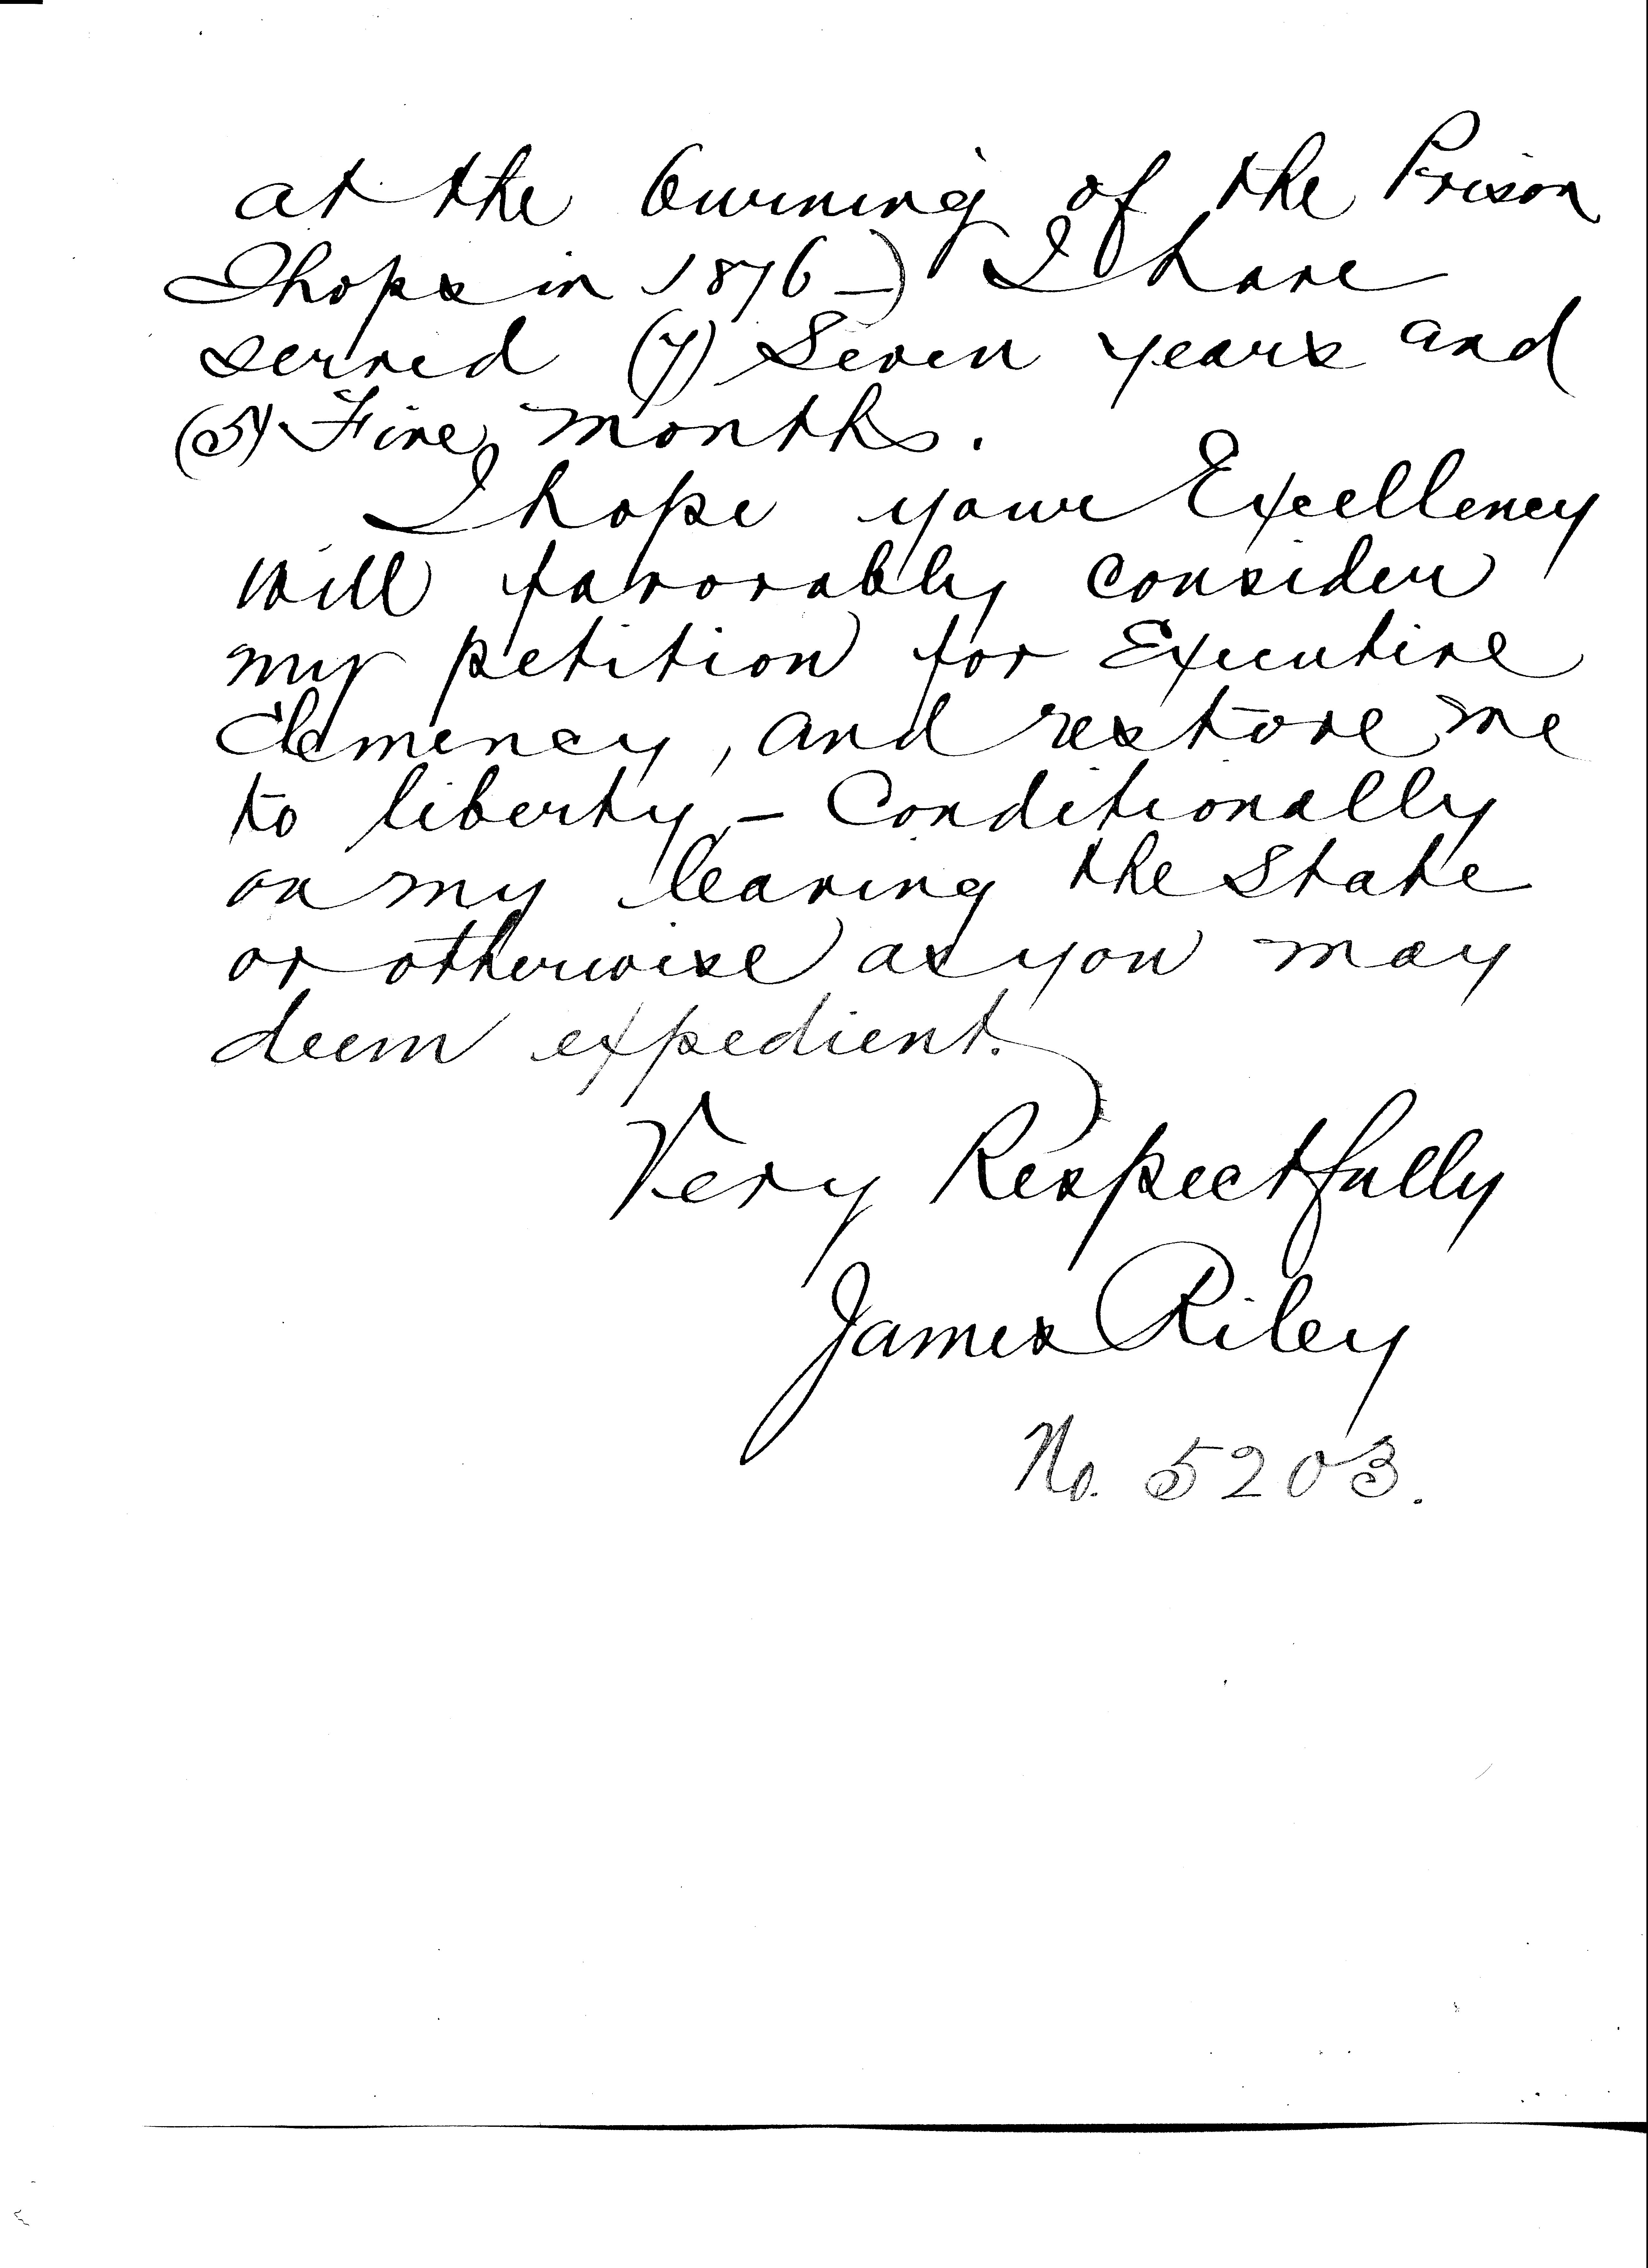 at the burning of the Prison
Shops in 1876 –) I have
served (7) Seven years and
(5) Five months.
I hope your Excellency
will favorably consider
my petition for Executive
Clemency, and restore me
to liberty, – Conditionally
on my leaving the State
or otherwise as you may
deem expedient.
Very Respectfully
James Riley
No. 5203.